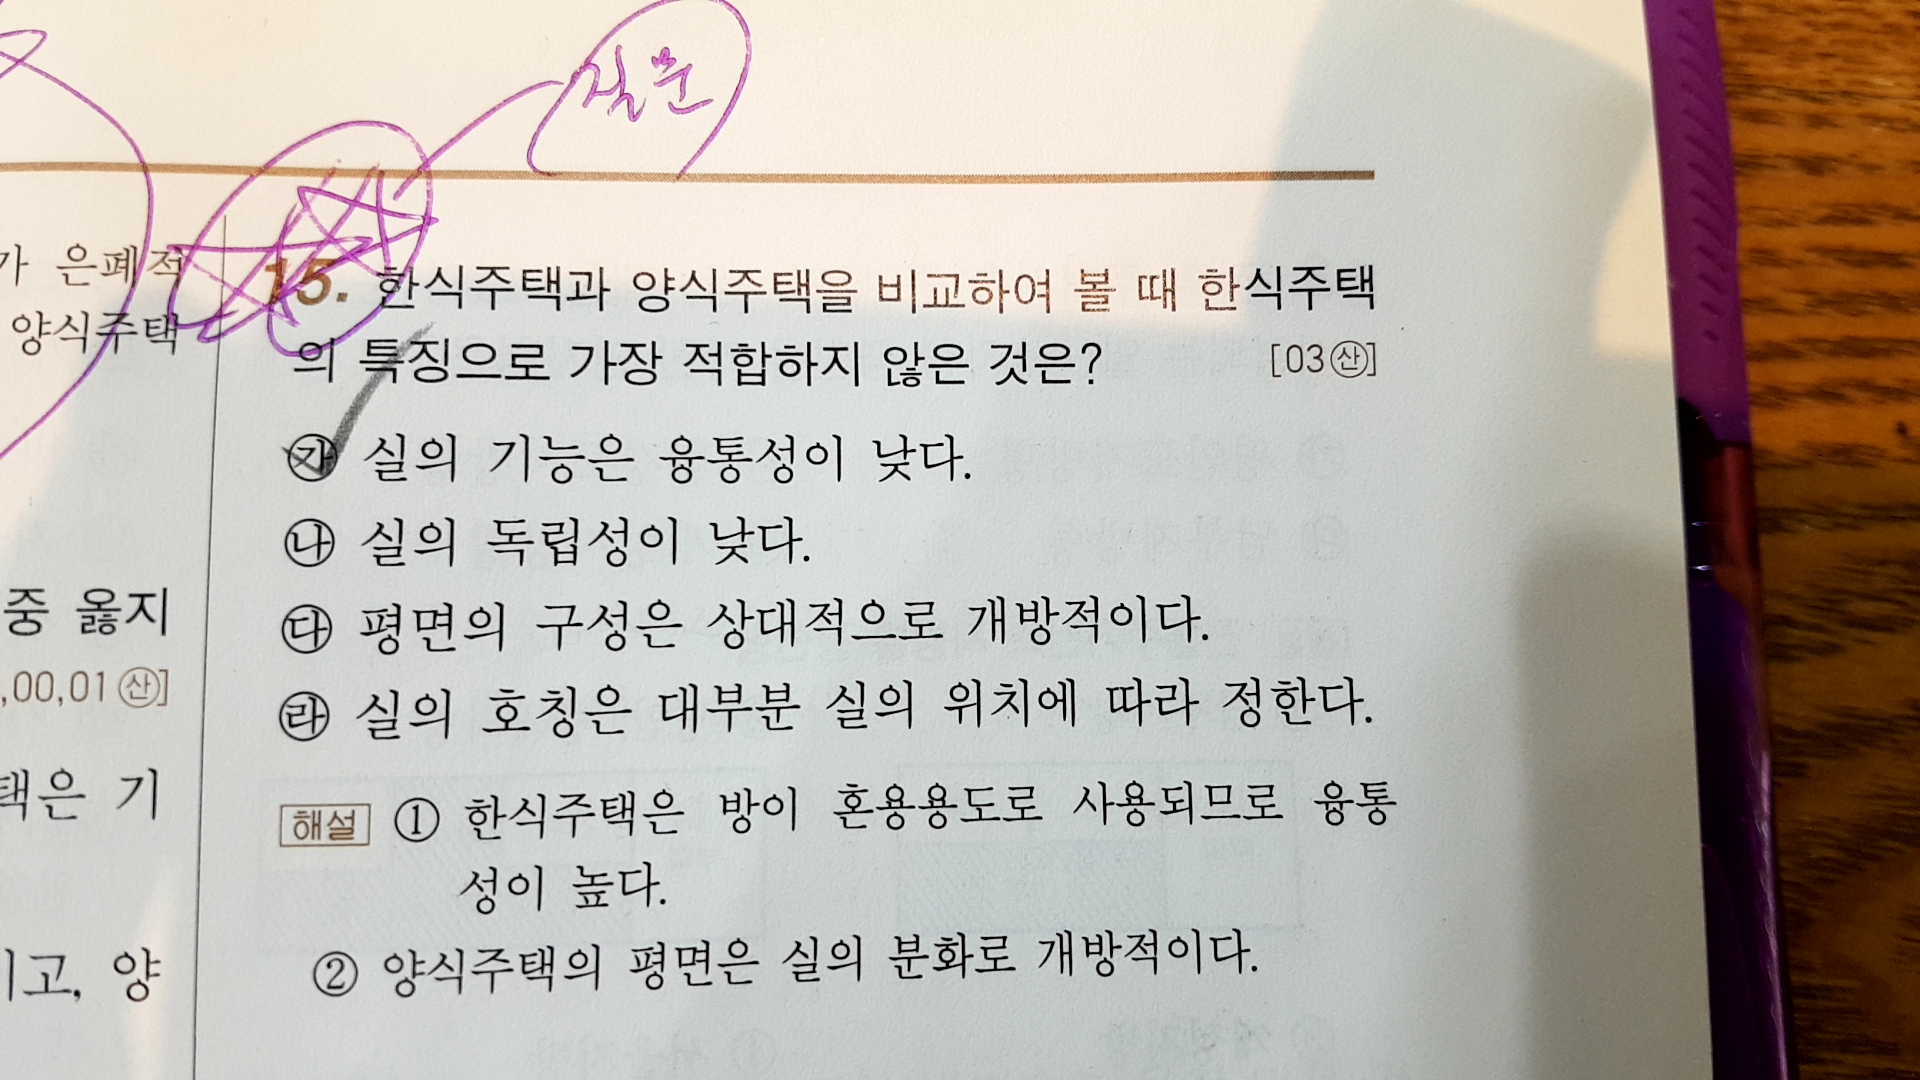 질문
가 은폐적
양식주택
중 옳지
,00,01㉮산]
택은 기
고, 양
15. 한식주택과 양식주택을 비교하여 볼 때 한식주택
의 특징으로 가장 적합하지 않은 것은? [03산]
㉮ 실의 기능은 융통성이 낮다.
㉯ 실의 독립성이 낮다.
㉰ 평면의 구성은 상대적으로 개방적이다.
㉱ 실의 호칭은 대부분 실의 위치에 따라 정한다.
해설 ① 한식주택은 방이 혼용용도로 사용되므로 융통
성이 높다.
② 양식주택의 평면은 실의 분화로 개방적이다.